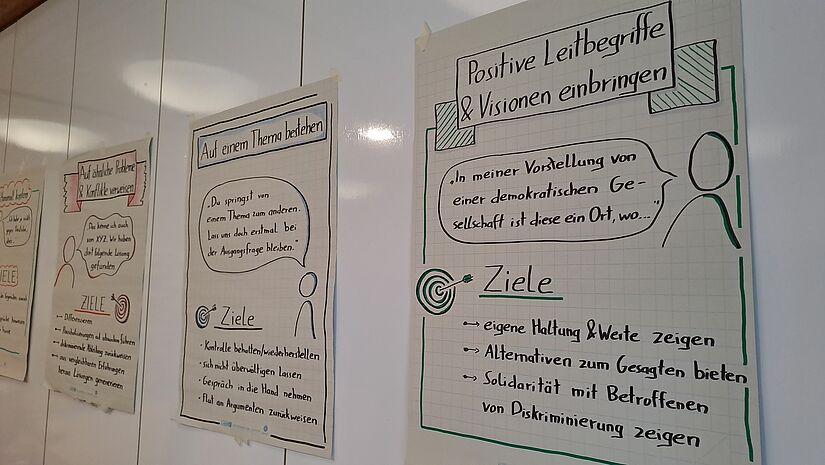 ZIELE
Auf ähnliche Probleme
& Konflikte verweisen
Das kenne ich auch
von XYZ. Wir haben
dort folgende Lösung
gefunden
ZIELE
Differenzieren
diskriminierende Ableitung zurückweisen
aus vergleichbaren Erfahrungen
heraus Lösungen generieren
Auf einem Thema bestehen
"Du springst von
einem Thema zum anderen.
Lass uns doch erstmal bei
der Ausgangsfrage bleiben."
Ziele
• Kontrolle behalten/wiederherstellen
• sich nicht überwältigen lassen
• Gespräch in die Hand nehmen
• Flut an Argumenten zurückweisen
Positive Leitbegriffe
& Visionen einbringen
"In meiner Vorstellung von
einer demokratischen Ge-
sellschaft ist diese ein Ort, wo..."
Ziele
eigene Haltung & Werte zeigen
Alternativen zum Gesagten bieten
Solidarität mit Betroffenen
von Diskriminierung zeigen